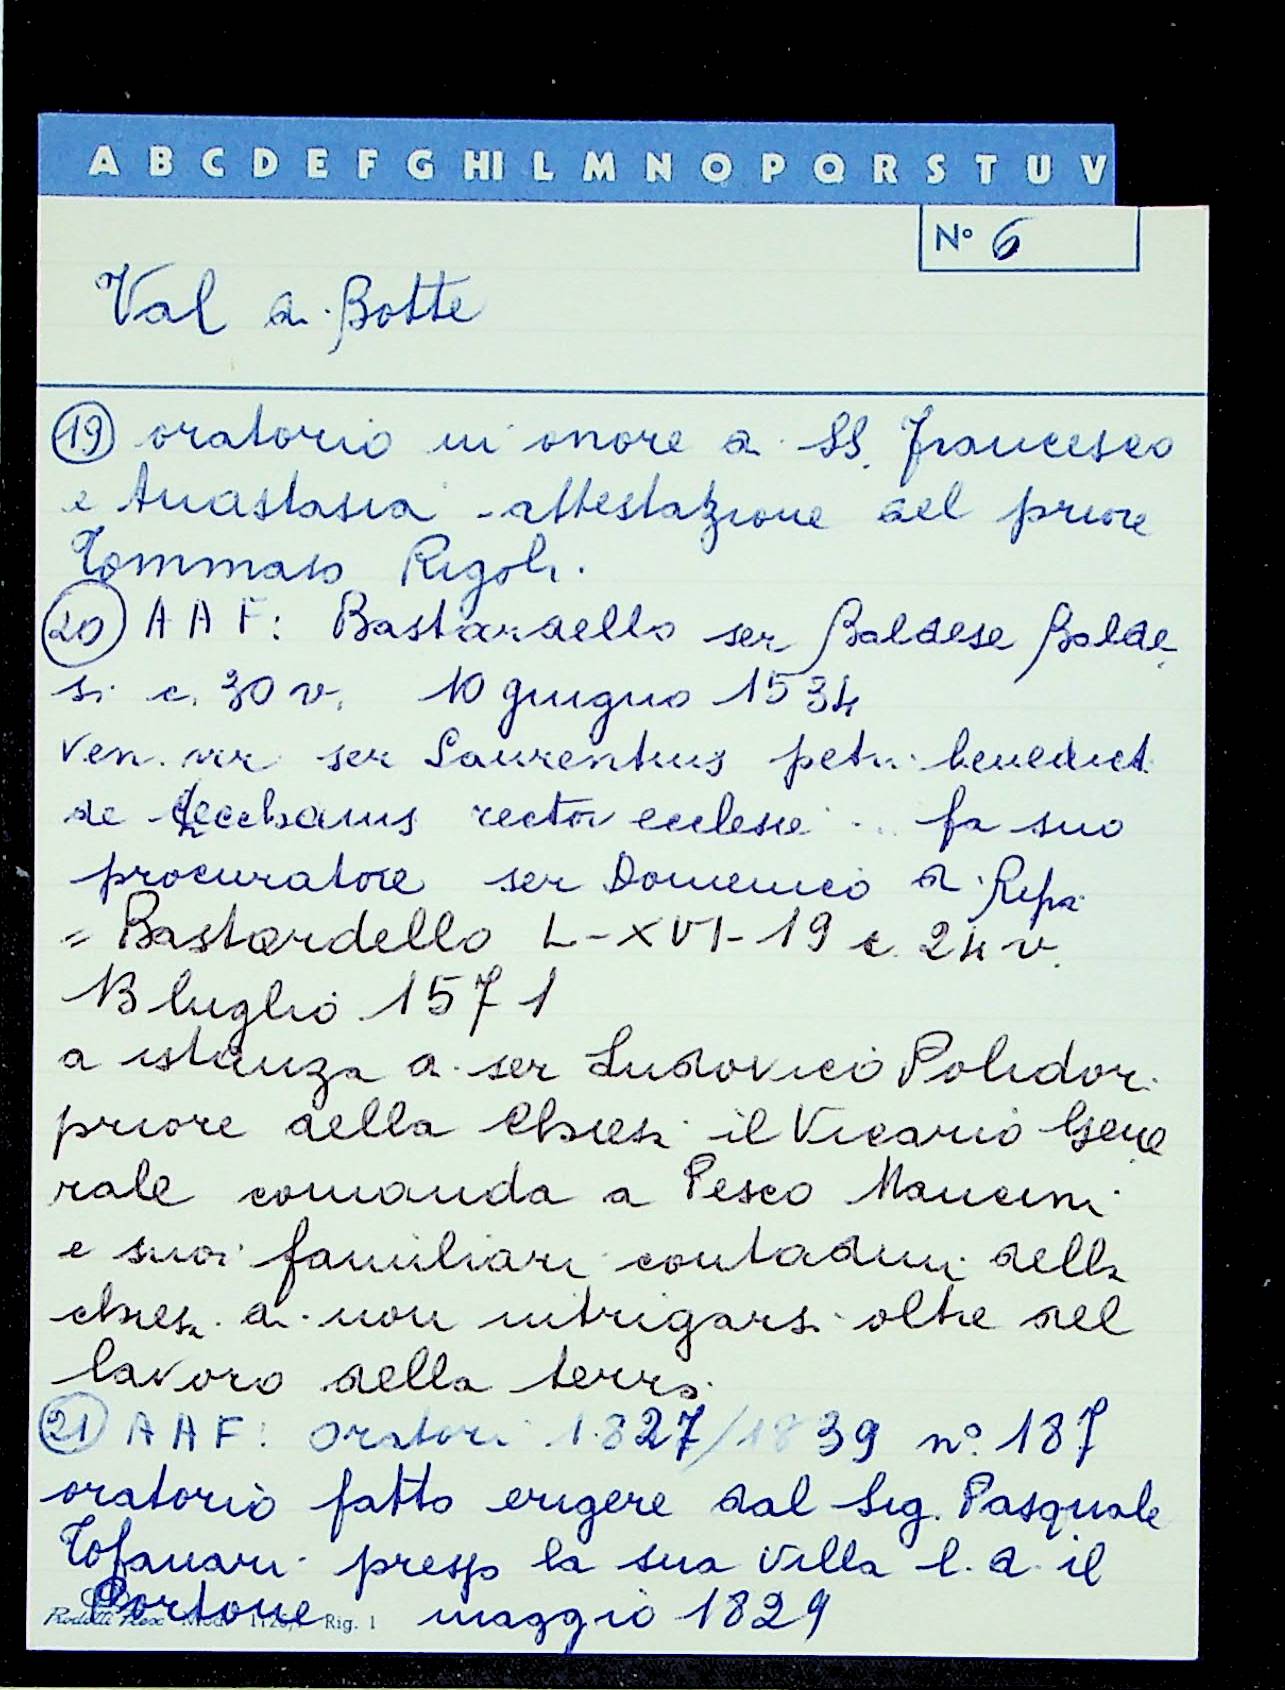 A B C D E F G HI L M N O P Q R S T U V
N° 6
Val di Botte
19 oratorio in onore di SS. Francesco
e Anastasia - attestazione del priore
Tommaso Rigoli.
20 A A F: Bastardello ser Baldese Balde
si c. 30 v. 10 giugno 1534
ven. vir ser Laurentius petri benedicti
de rector ecclesie .. fa suo
procuratore ser Domenico di Ripa
= Bastardello L-XVI-19 c. 24 v.
13 luglio 1571
a istanza di ser Ludovico Polidori
priore della Chiesa il Vicario Gene
rale comanda a Pesco Mancini
e suoi familiari contadini della
chiesa di non intrigarsi oltre nel
lavoro della terra.
21 A A F: Oratori 1827/1839 n° 187
oratorio fatto erigere dal Sig. Pasquale
Tofanari presso la sua villa l. d. il
Portone maggio 1829
Rig. 1